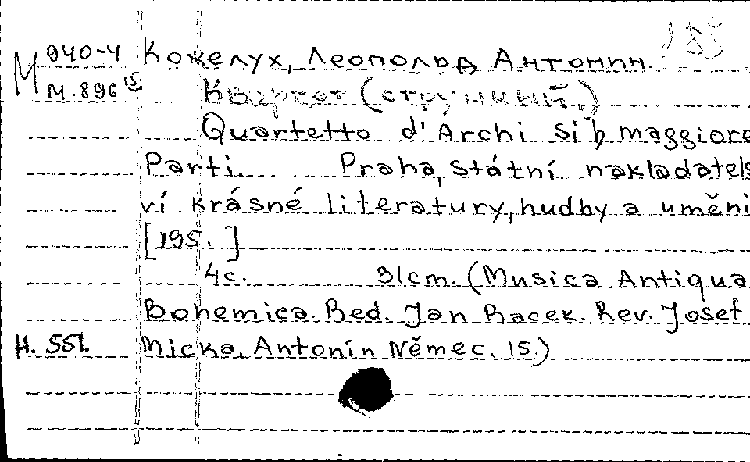 M 940-4 Кожелух, Леополъд Антонин.
М.896
Квартет (струнный.)
Quartetto d'Archi Si b maggiore
Parti. Praha, Státní nakladatels
ví krásné literatury, hudby a umění
[195. ]
4c. 31cm. (Musica Antiqua
Bohemica. Red. Jan Racek. Rev. Josef
H. 551. Micka, Antonín Němec. 15.)